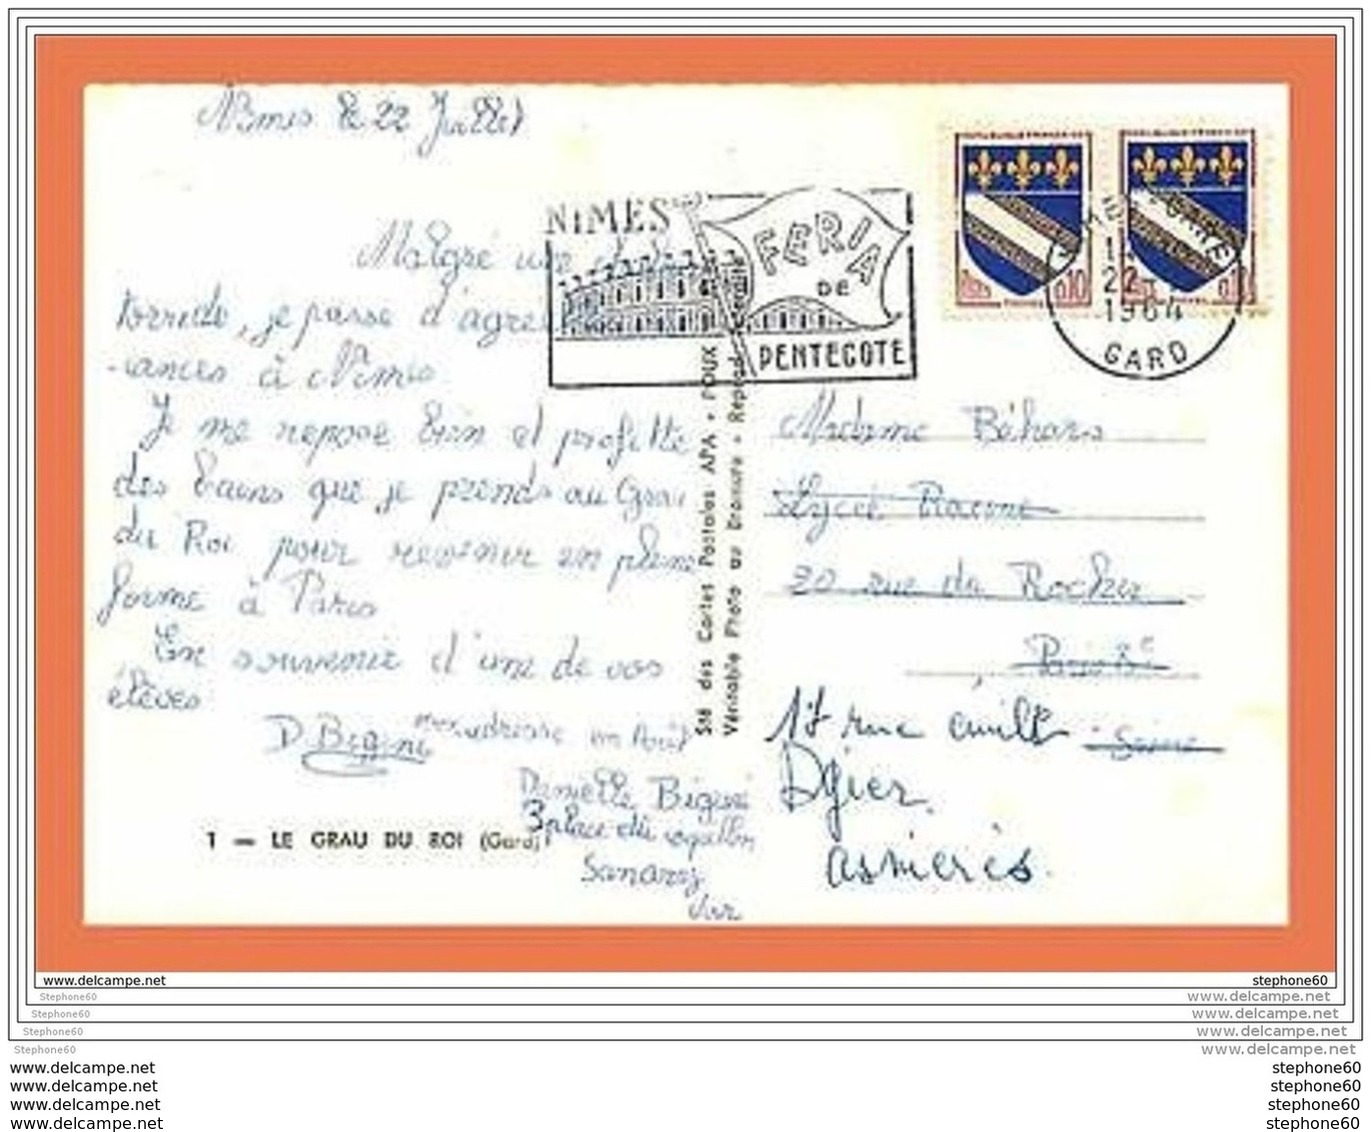 Nimes le 22 Juillet
NÎMES
FERIA
DE
PENTECOTE
0,10
GARE
22
1964
GARD
Malgré une
torride, je passe d'agré
-ances à Nimes
Je me repose bien et profitte
des bains que je prends au Grau
du Roi pour revenir en pleine
forme à Paris
En souvenir d'une de vos
élèves
D. Bigini
mon adresse en Août
Danielle Bigini
3 place du
Sanary
Var
1 — LE GRAU DU ROI (Gard)
Sté des Cartes Postales APA - POUX
Véritable Photo au Bromure - Reprod
Madame Béhars
Lycée Racine
20 rue du Rocher
Paris 8e
Seine
17 rue
Dgier
asnières
www.delcampe.net stephone60
Stephone60 www.delcampe.net
Stephone60 www.delcampe.net
Stephone60 www.delcampe.net
Stephone60 www.delcampe.net
www.delcampe.net stephone60
www.delcampe.net stephone60
www.delcampe.net stephone60
www.delcampe.net stephone60